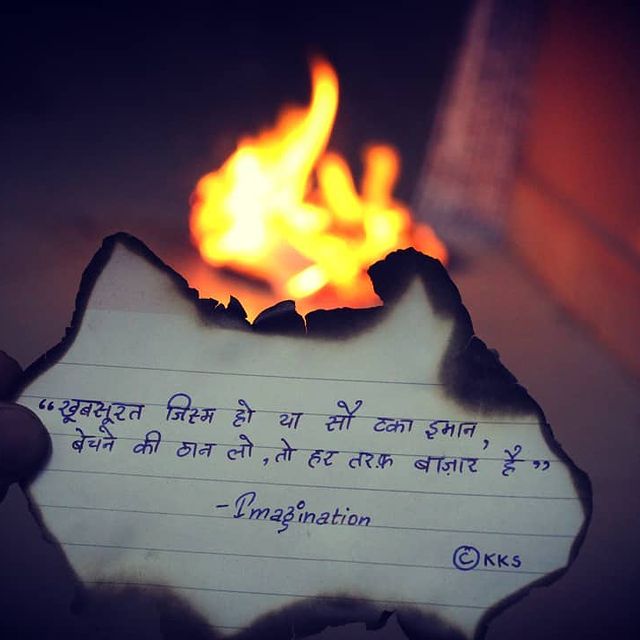 “खूबसूरत जिस्म हो या सौ टका इमान,
बेचने की ठान लो, तो हर तरफ़ बाज़ार है”
- Imagination
© KKS